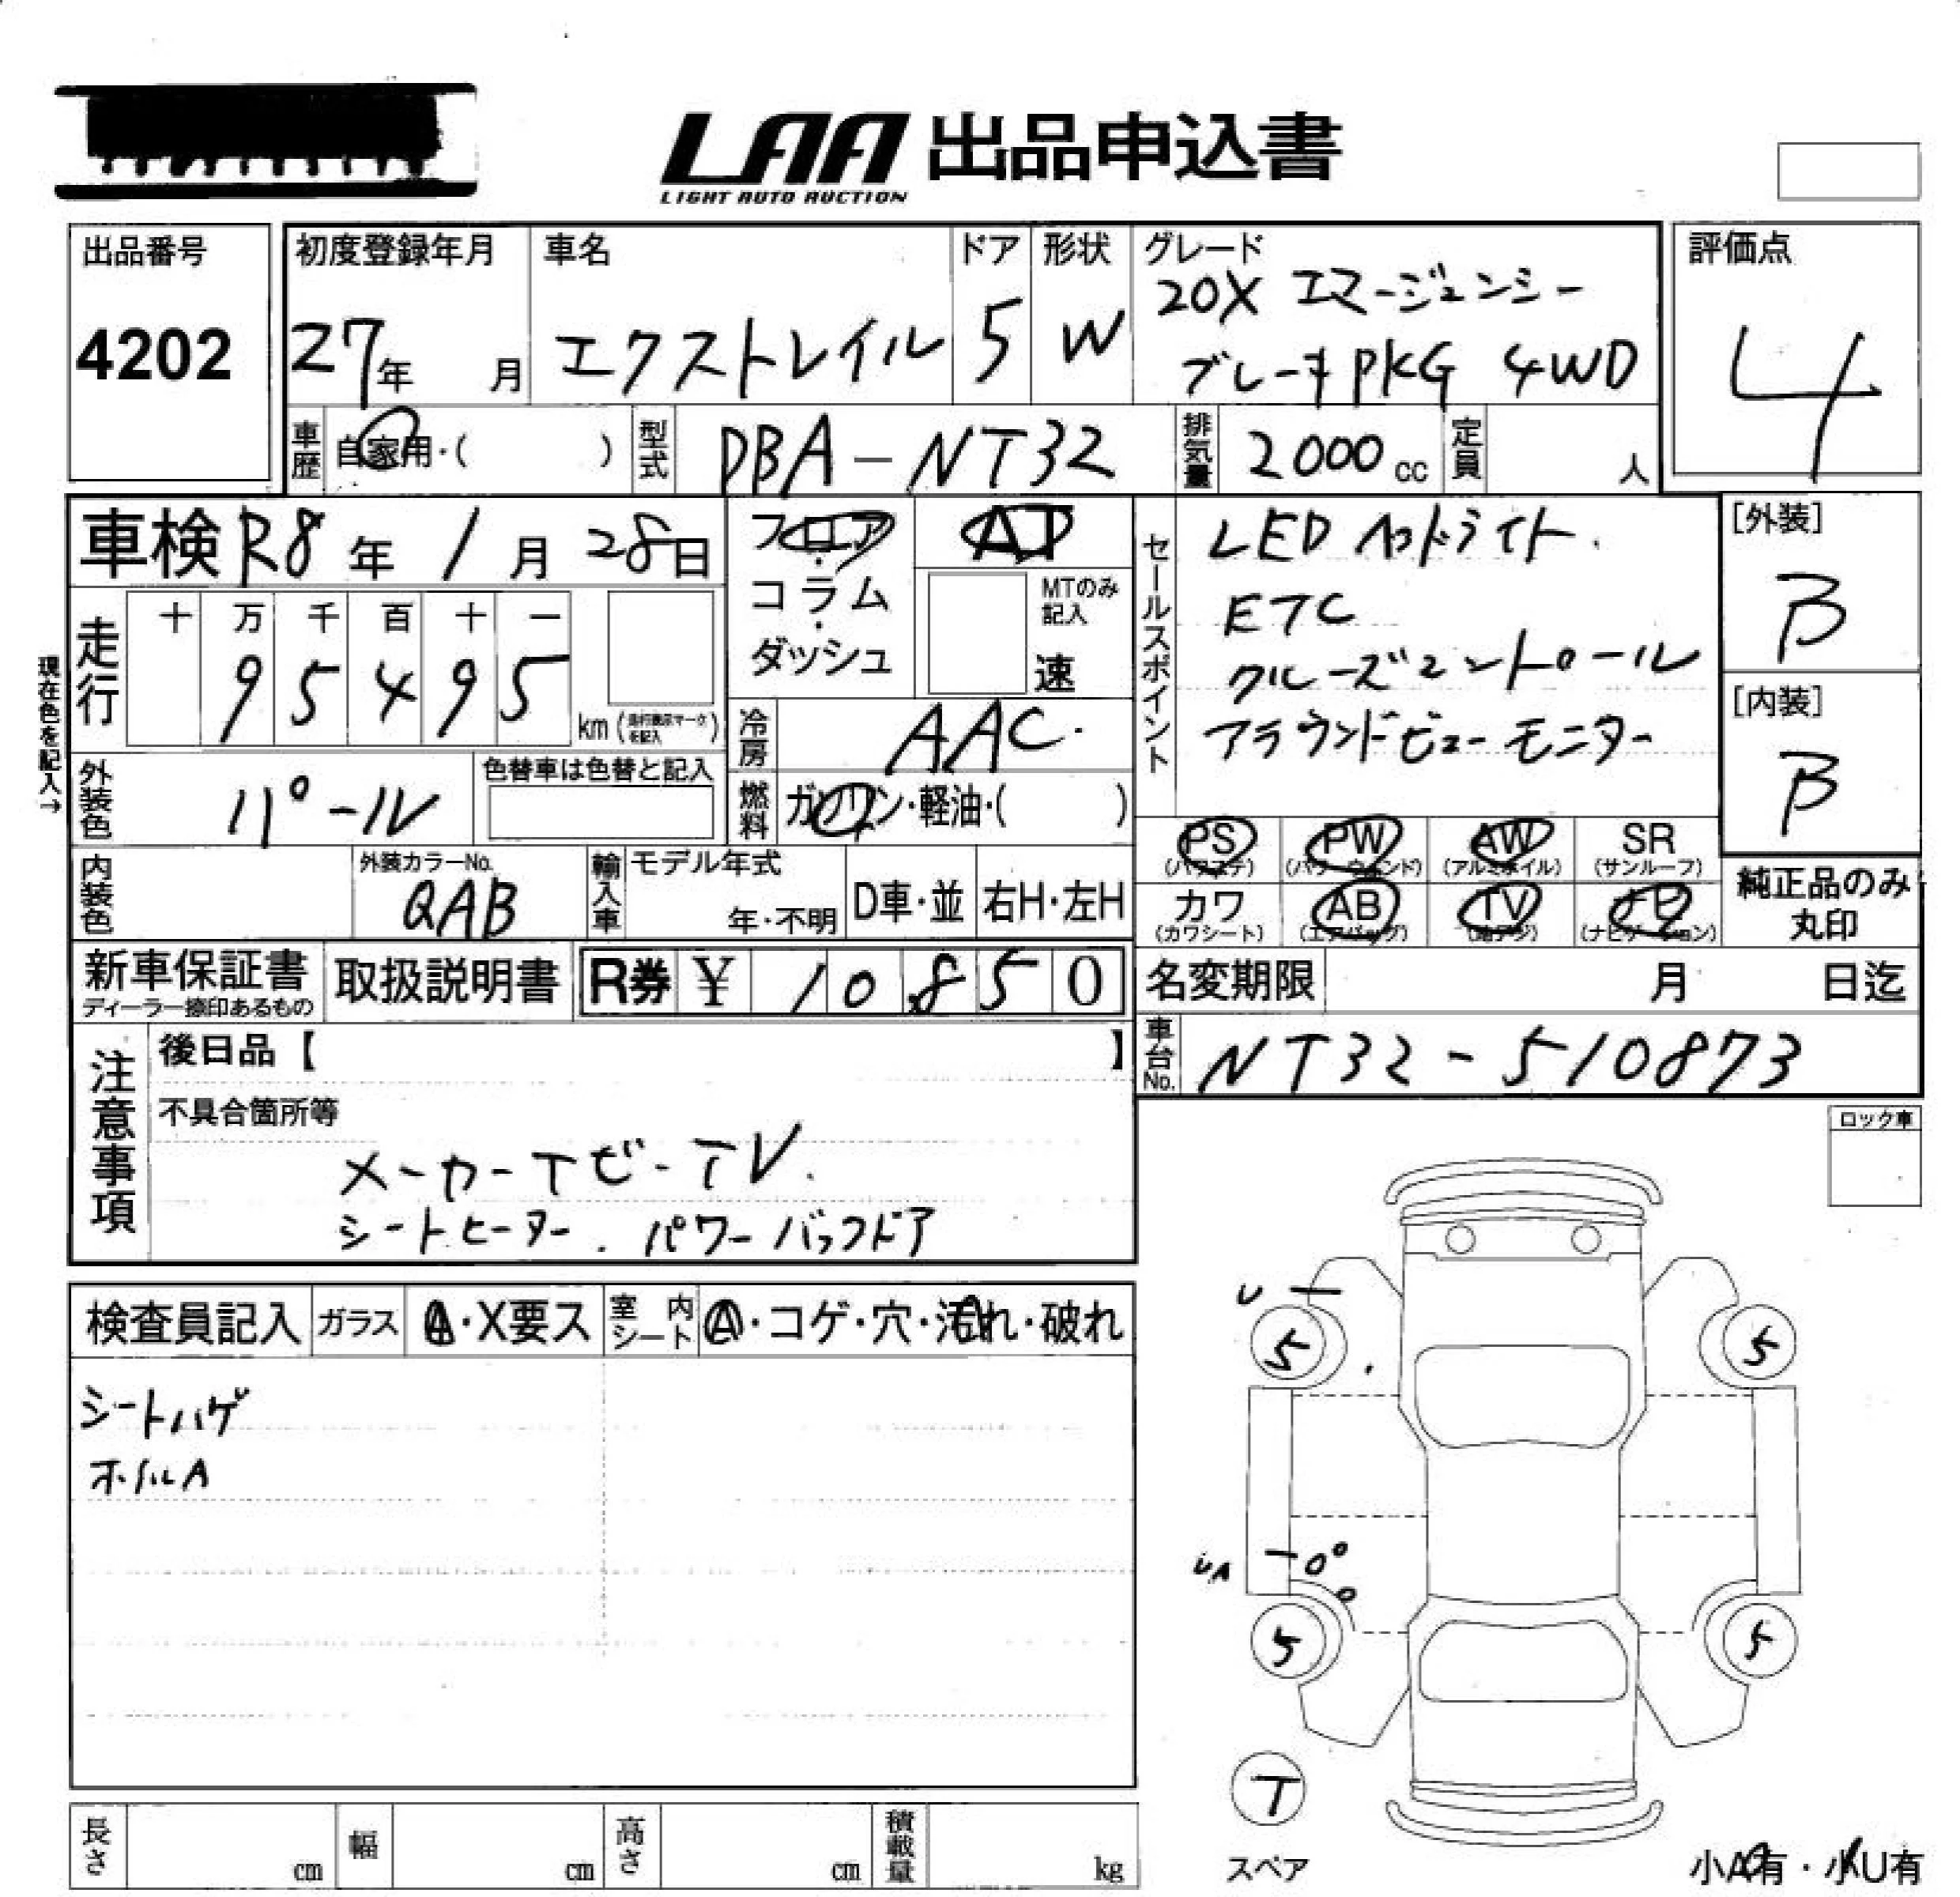 LAA 出品申込書
LIGHT AUTO AUCTION
出品番号
4202
初度登録年月
27年 月
車名
エクストレイル
ドア
5
形状
W
グレード
20X エマージェンシー
ブレーキPKG 4WD
評価点
4
車歴
自家用・( )
型式
DBA-NT32
排気量
2000cc
定員
人
車検 R8年 1月 28日
フロア・
コラム・
ダッシュ
AT
MTのみ
記入
速
セールスポイント
LEDヘッドライト.
ETC
クルーズコントロール
アラウンドビューモニター
[外装]
B
[内装]
B
現在色を記入→
走行
十 万 千 百 十 一
9 5 4 9 5
km
冷房
AAC.
外装色
パール
色替車は色替と記入
燃料
ガソリン・軽油・( )
PS
(パワステ)
PW
(パワーウィンド)
AW
(アルミホイル)
SR
(サンルーフ)
内装色
外装カラーNo.
QAB
輸入車
モデル年式
年・不明
D車・並
右H・左H
カワ
(カワシート)
AB
(エアバッグ)
TV
(地デジ)
ナビ
(ナビゲーション)
純正品のみ
丸印
新車保証書
ディーラー捺印あるもの
取扱説明書
R券 ¥ 10,850
名変期限 月 日迄
注意事項
後日品【 】
車台No.
NT32-510873
不具合箇所等
メーカーナビ-TV.
シートヒーター. パワーバックドア
ロック車
検査員記入
ガラス
A・X要ス
室内シート
A・コゲ・穴・汚れ・破れ
シートハゲ
ホイルA
U
5
5
UA
5
5
T
スペア
長さ cm
幅 cm
高さ cm
積載量 kg
小A有・小U有